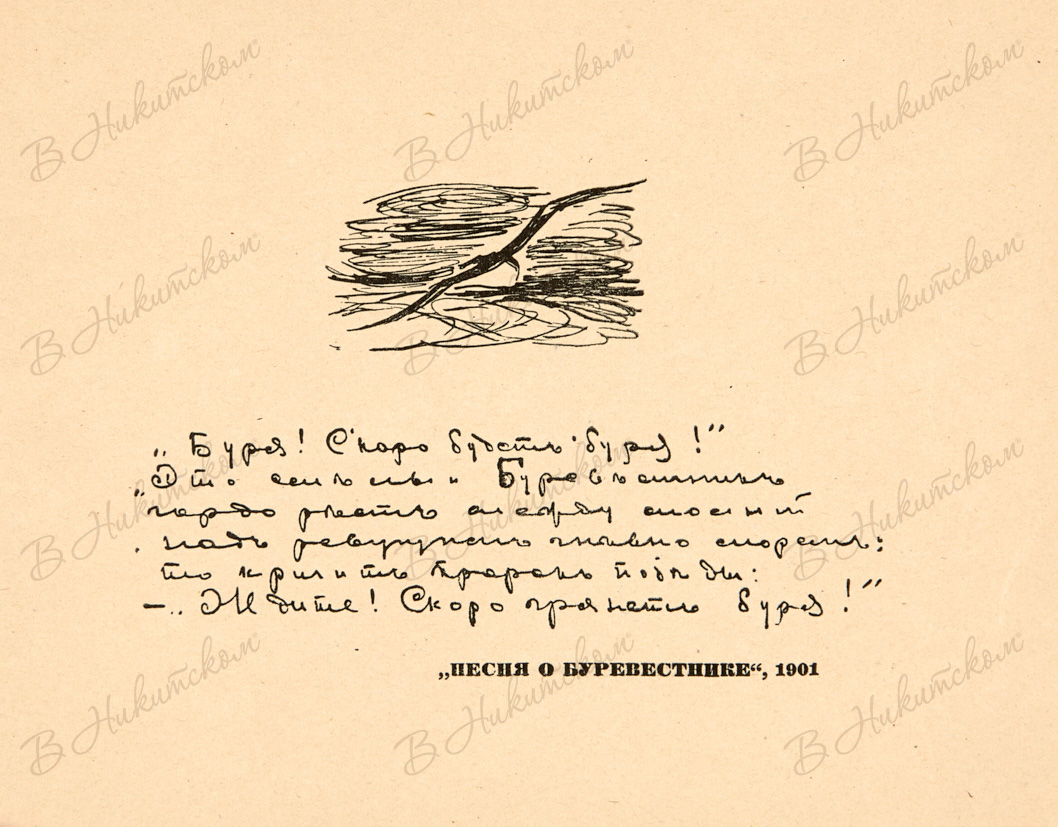 В Никитском В Никитском В Никитском
В Никитском В Никитском В Никитском
„Буря! Скоро будетъ буря!”
„Это смѣлый Буревѣстникъ
гордо рѣетъ между молній
надъ ревущимъ гнѣвно моремъ:
то кричитъ пророкъ побѣды:
— „Ждите! Скоро грянетъ буря!”
В Никитском В Никитском В Никитском
„ПЕСНЯ О БУРЕВЕСТНИКЕ“, 1901
В Никитском В Никитском В Никитском